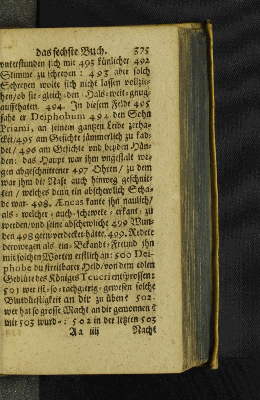 das sechste Buch. 375
vnterstunden sich mit 493 künlicher 492
Stimme zu schreyen: 493 aber solch
Schreyen wolte sich nicht lassen vollzie-
hen/ ob sie-gleich-den-Hals-weit-gnug-
auffthaten. 494. In diesem Felde 495
sahe er Deiphobum 494 den Sohn
Priami, an seinem gantzen Leibe zerha-
cket/ 495 am Gesichte jämmerlich zu fad-
det/ 496 am Gesichte vnd beyden Hän-
den: das Haupt war ihm vngestalt we-
gen abgeschnittener 497 Ohren/ zu dem
war ihm die Nase auch hinweg geschnit-
ten/ welches denn ein abscheulich Scha-
de war. 498. Æneas kante ihn nåulich/
als-welcher-auch-schewete-erkant-zu
werden/ vnd seine abschewlicht 499 Wun-
den 498 gern verdecket hätte. 499. Redete
derowegen als-ein-Bekandt-Freund ihn
mit solchen Worten erstlich an: 500 Dei-
phobe du streitbarer Held/ von dem edlen
Geblüte des Königes Teucri entsprossen:
501 wer ist-so-rachgierig-gewesen solche
Blutdürstigkeit an dir zu üben? 502.
wer hat so grosse Macht an dir gewonnen?
mit 503 wurd-: 502 in der letzten 503
Aa iiij Nacht